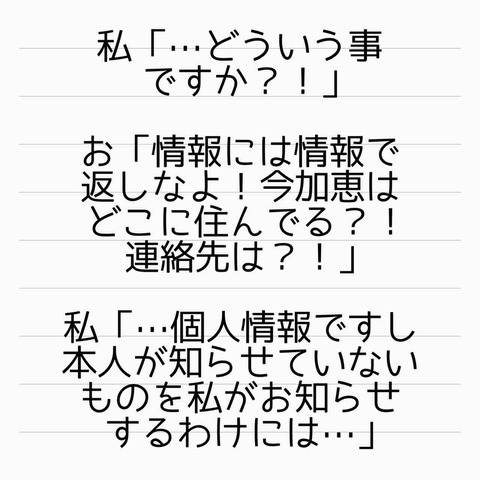 私「…どういう事
ですか？！」
お「情報には情報で
返しなよ！今加恵は
どこに住んでる？！
連絡先は？！」
私「…個人情報ですし
本人が知らせていない
ものを私がお知らせ
するわけには…」